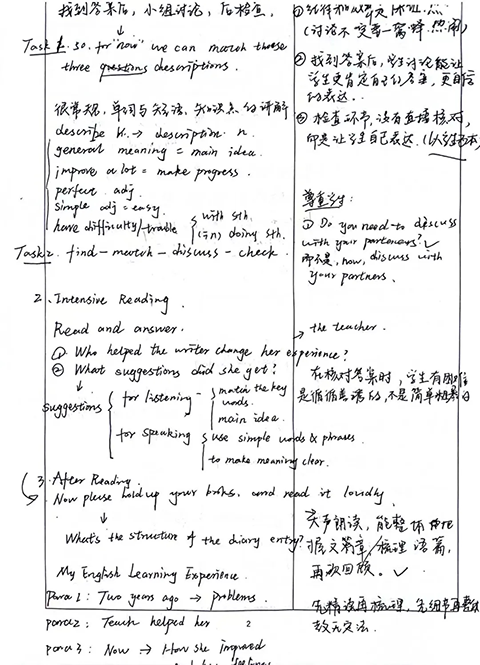 找到答案后，小组讨论，后检查，
Task 1. so. for "now" we can match these
three questions descriptions.
很常规，单词与短语、知识点的讲解
describe v. → description n.
general meaning = main idea.
improve a lot = make progress.
perfect adj
simple adj = easy.
have difficulty/trouble
with sth.
(in) doing sth.
Task 2. find - match - discuss - check.
2. Intensive Reading.
Read and answer.
① Who helped the writer change her experience?
② What suggestions did she get?
suggestions
for listening -
match the key
words.
main idea.
for speaking
use simple words & phrases
to make meaning clear.
3. After Reading.
Now please hold up your books. and read it loudly
What's the structure of the diary entry?
My English Learning Experience.
para 1: Two years ago → problems.
para 2: Teach helped her
2
para 3: Now → How she improved
(讨论不变一窝蜂 热闹)
② 找到答案后，学生讨论能让
学生更肯定自己的答案，更自信
的表达..
③ 检查环节，没有直接核对，
而是让学生自己表达.
尊重学生:
① Do you need to discuss
with your parteners? ✓
而不是, now, discuss with
your partners.
→ the teacher.
在核对答案时，学生有困难
是循循善诱的，不是简单粗暴
大声朗读，能整体把
握文篇章，梳理语篇，
再次回顾。✓
先精读再梳理，先细节再整体